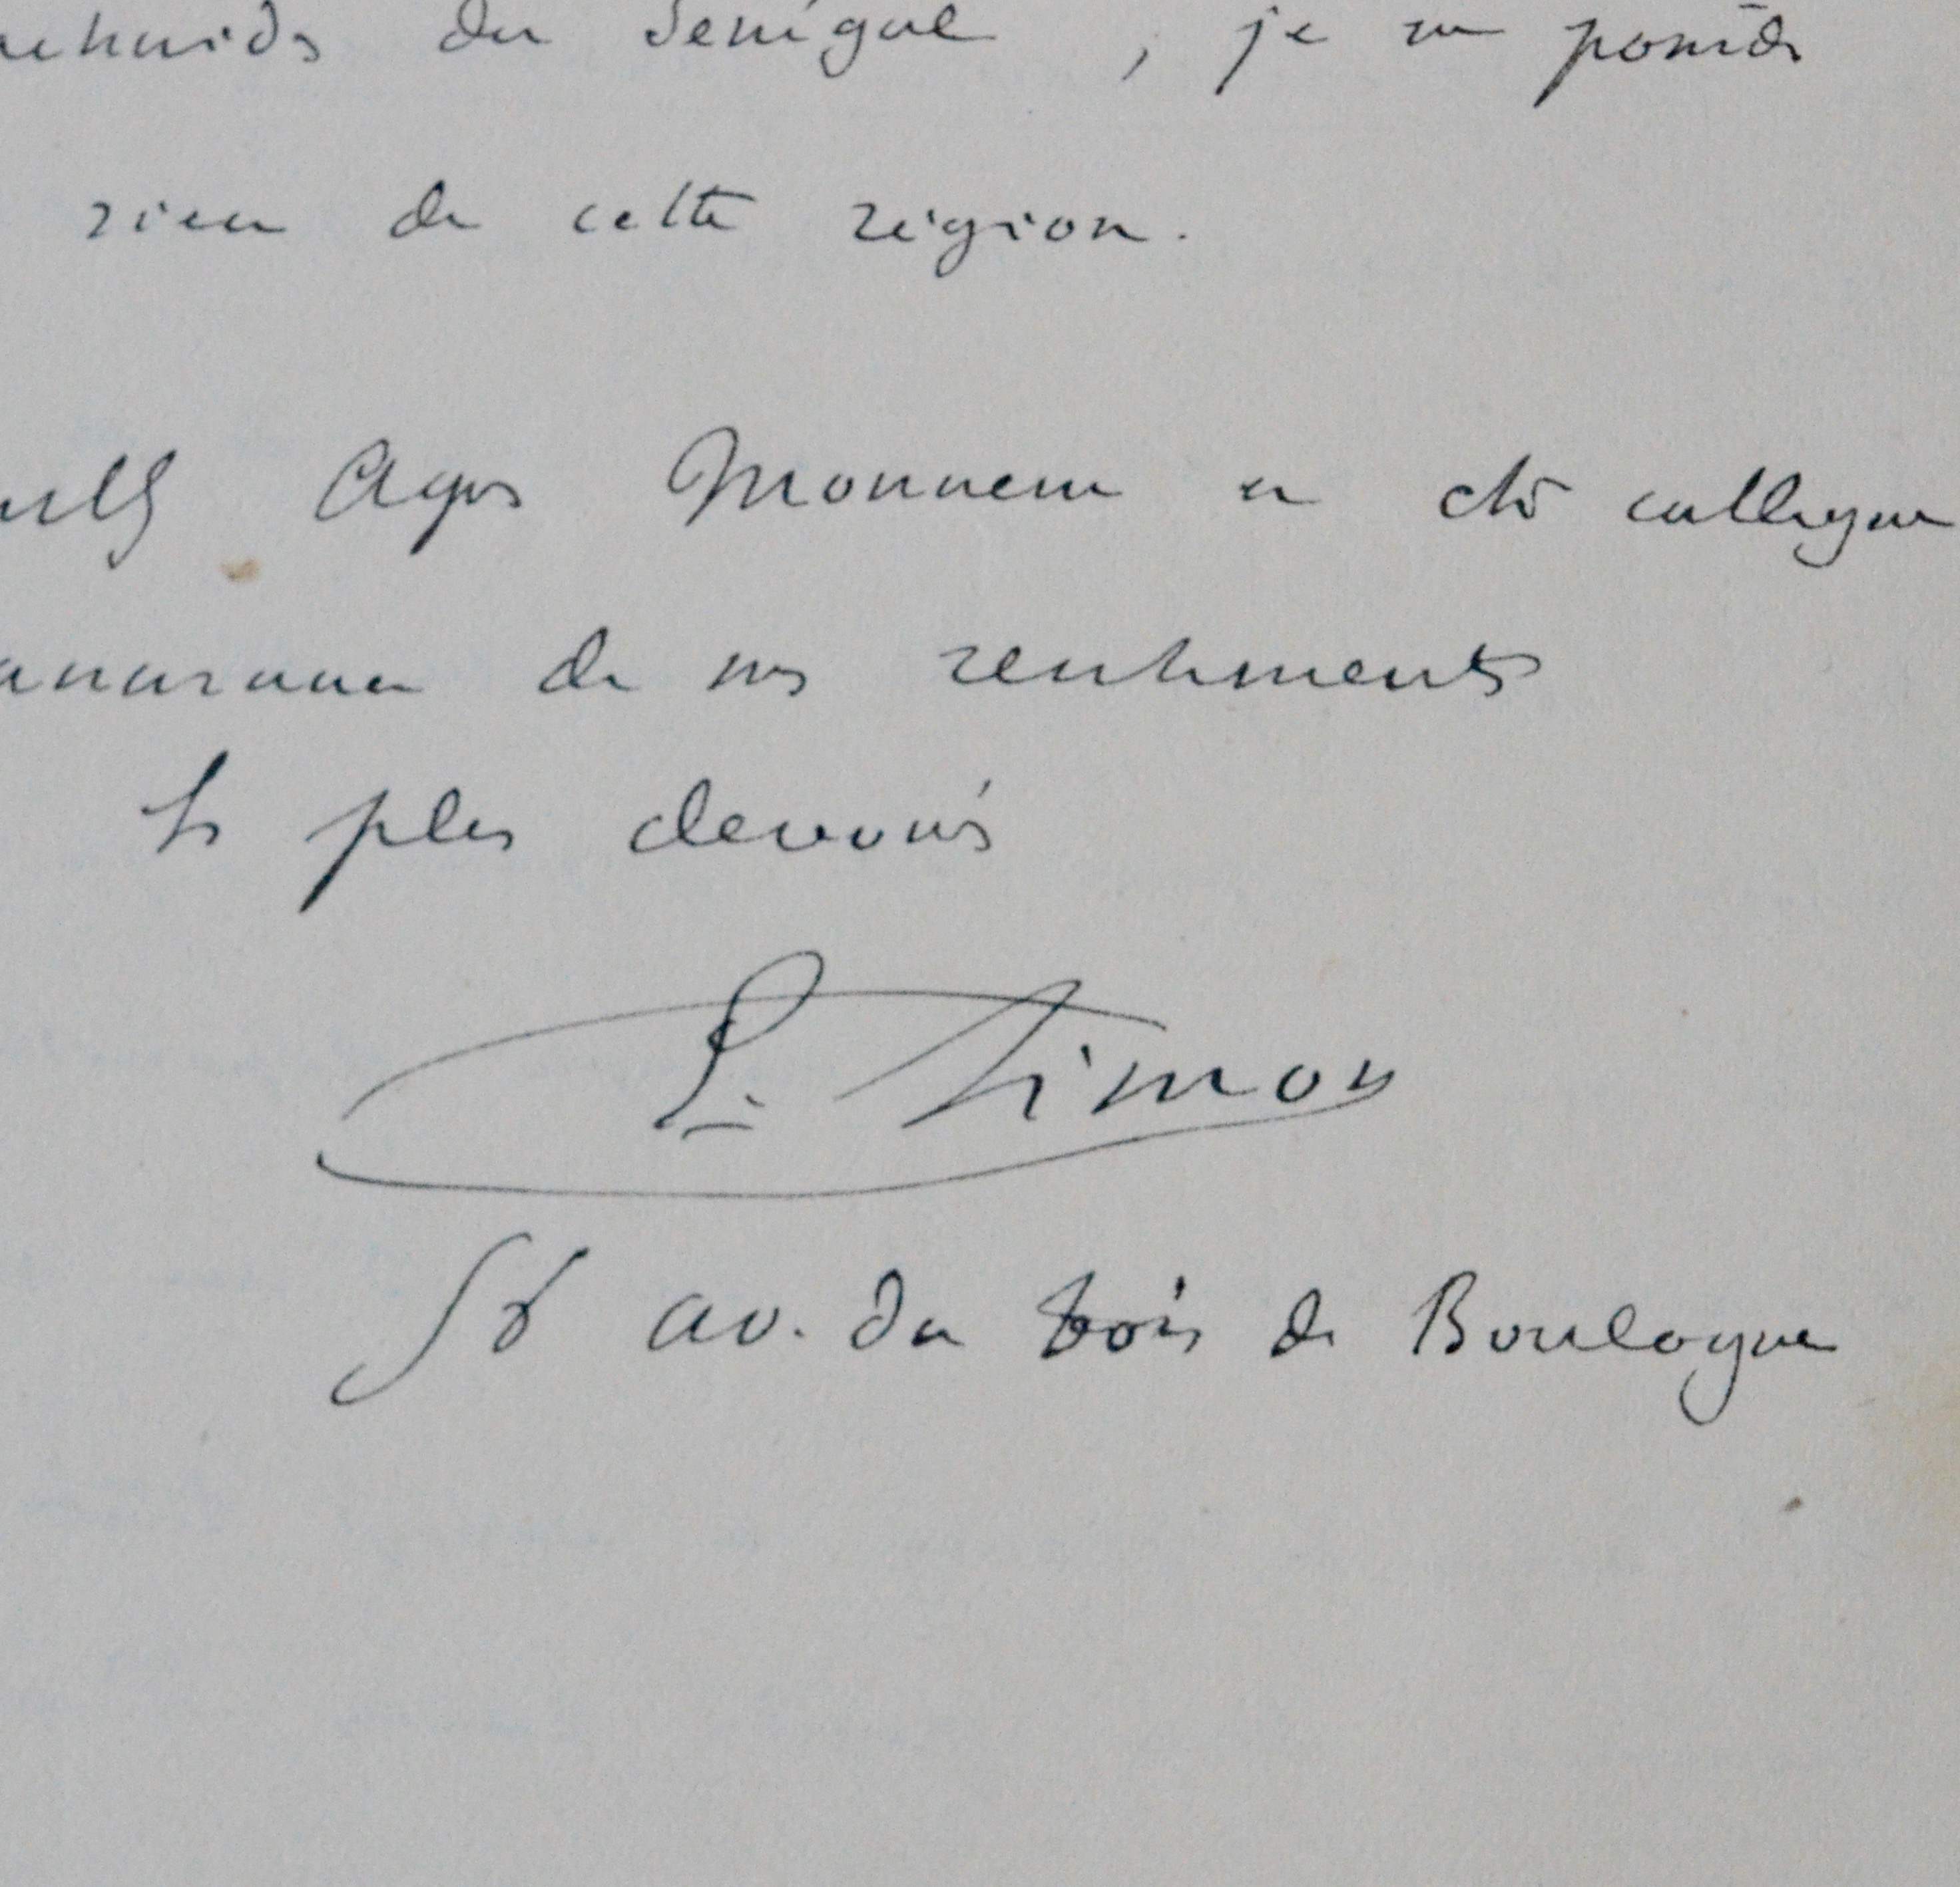 arachnides du Sénégal, je ne possède
rien de cette région.
veuillez agréer Monsieur et cher collègue
l'assurance de mes sentiments
les plus dévoués
E. Simon
56 av. du Bois de Boulogne